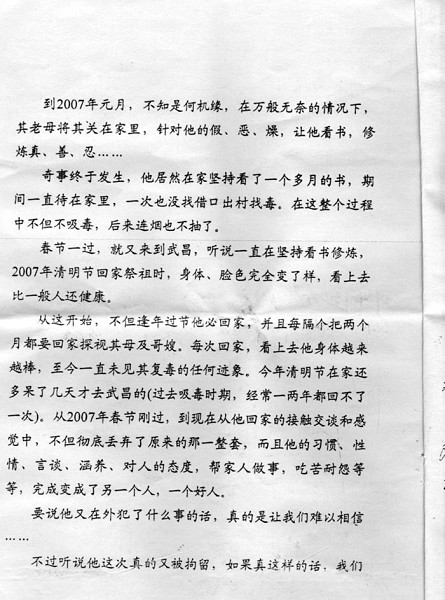 到2007年元月，不知是何机缘，在万般无奈的情况下，
其老母将其关在家里，针对他的假、恶、燥，让他看书，修
炼真、善、忍……
奇事终于发生，他居然在家坚持看了一个多月的书，期
间一直待在家里，一次也没找借口出村找毒。在这整个过程
中不但不吸毒，后来连烟也不抽了。
春节一过，就又来到武昌，听说一直在坚持看书修炼，
2007年清明节回家祭祖时，身体、脸色完全变了样，看上去
比一般人还健康。
从这开始，不但逢年过节他必回家，并且每隔个把两个
月都要回家探视其母及哥嫂。每次回家，看上去他身体越来
越棒，至今一直未见其复毒的任何迹象。今年清明节在家还
多呆了几天才去武昌的(过去吸毒时期，经常一两年都回不了
一次)。从2007年春节刚过，到现在从他回家的接触交谈和感
觉中，不但彻底丢弃了原来的那一整套，而且他的习惯、性
情、言谈、涵养、对人的态度，帮家人做事，吃苦耐怨等
等，完成变成了另一个人，一个好人。
要说他又在外犯了什么事的话，真的是让我们难以相信
……
不过听说他这次真的又被拘留，如果真这样的话，我们